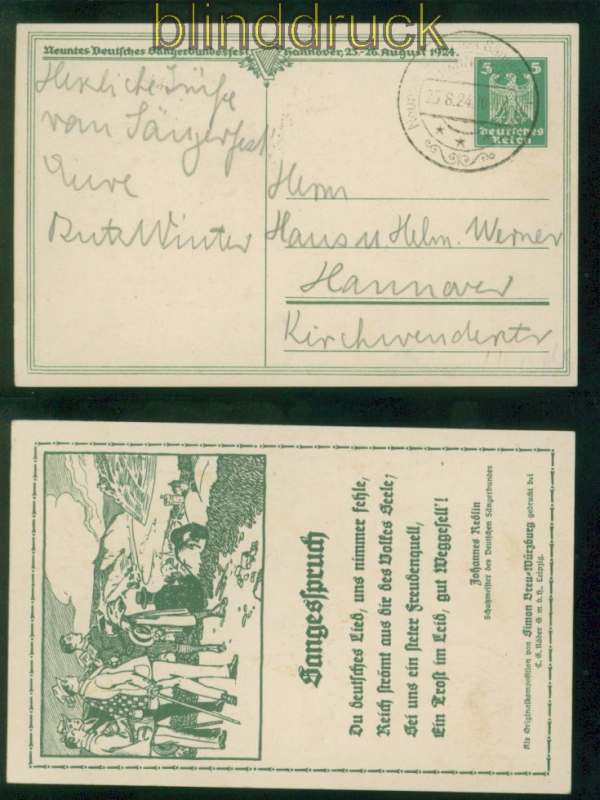 blinddruck
Neuntes Deutsches Sängerbundesfest Hannover, 23.-26. August 1924.
5 5
Deutsches
Reich
25.8.24.
Herzliche Grüße
vom Sängerfest
Eure
Winter
Herrn
Hans u Helm. Werner
Hannover
Sangesspruch
Du deutsches Lied, uns nimmer fehle,
Reich strömt aus dir des Volkes Seele;
Sei uns ein steter Freudenquell,
Ein Trost im Leid, gut Weggesell'!
Johannes Redlin
Schatzmeister des Deutschen Sängerbundes
Als Originalkomposition von Simon Breu-Würzburg gedruckt bei
C. G. Röder G. m. b. H., Leipzig.